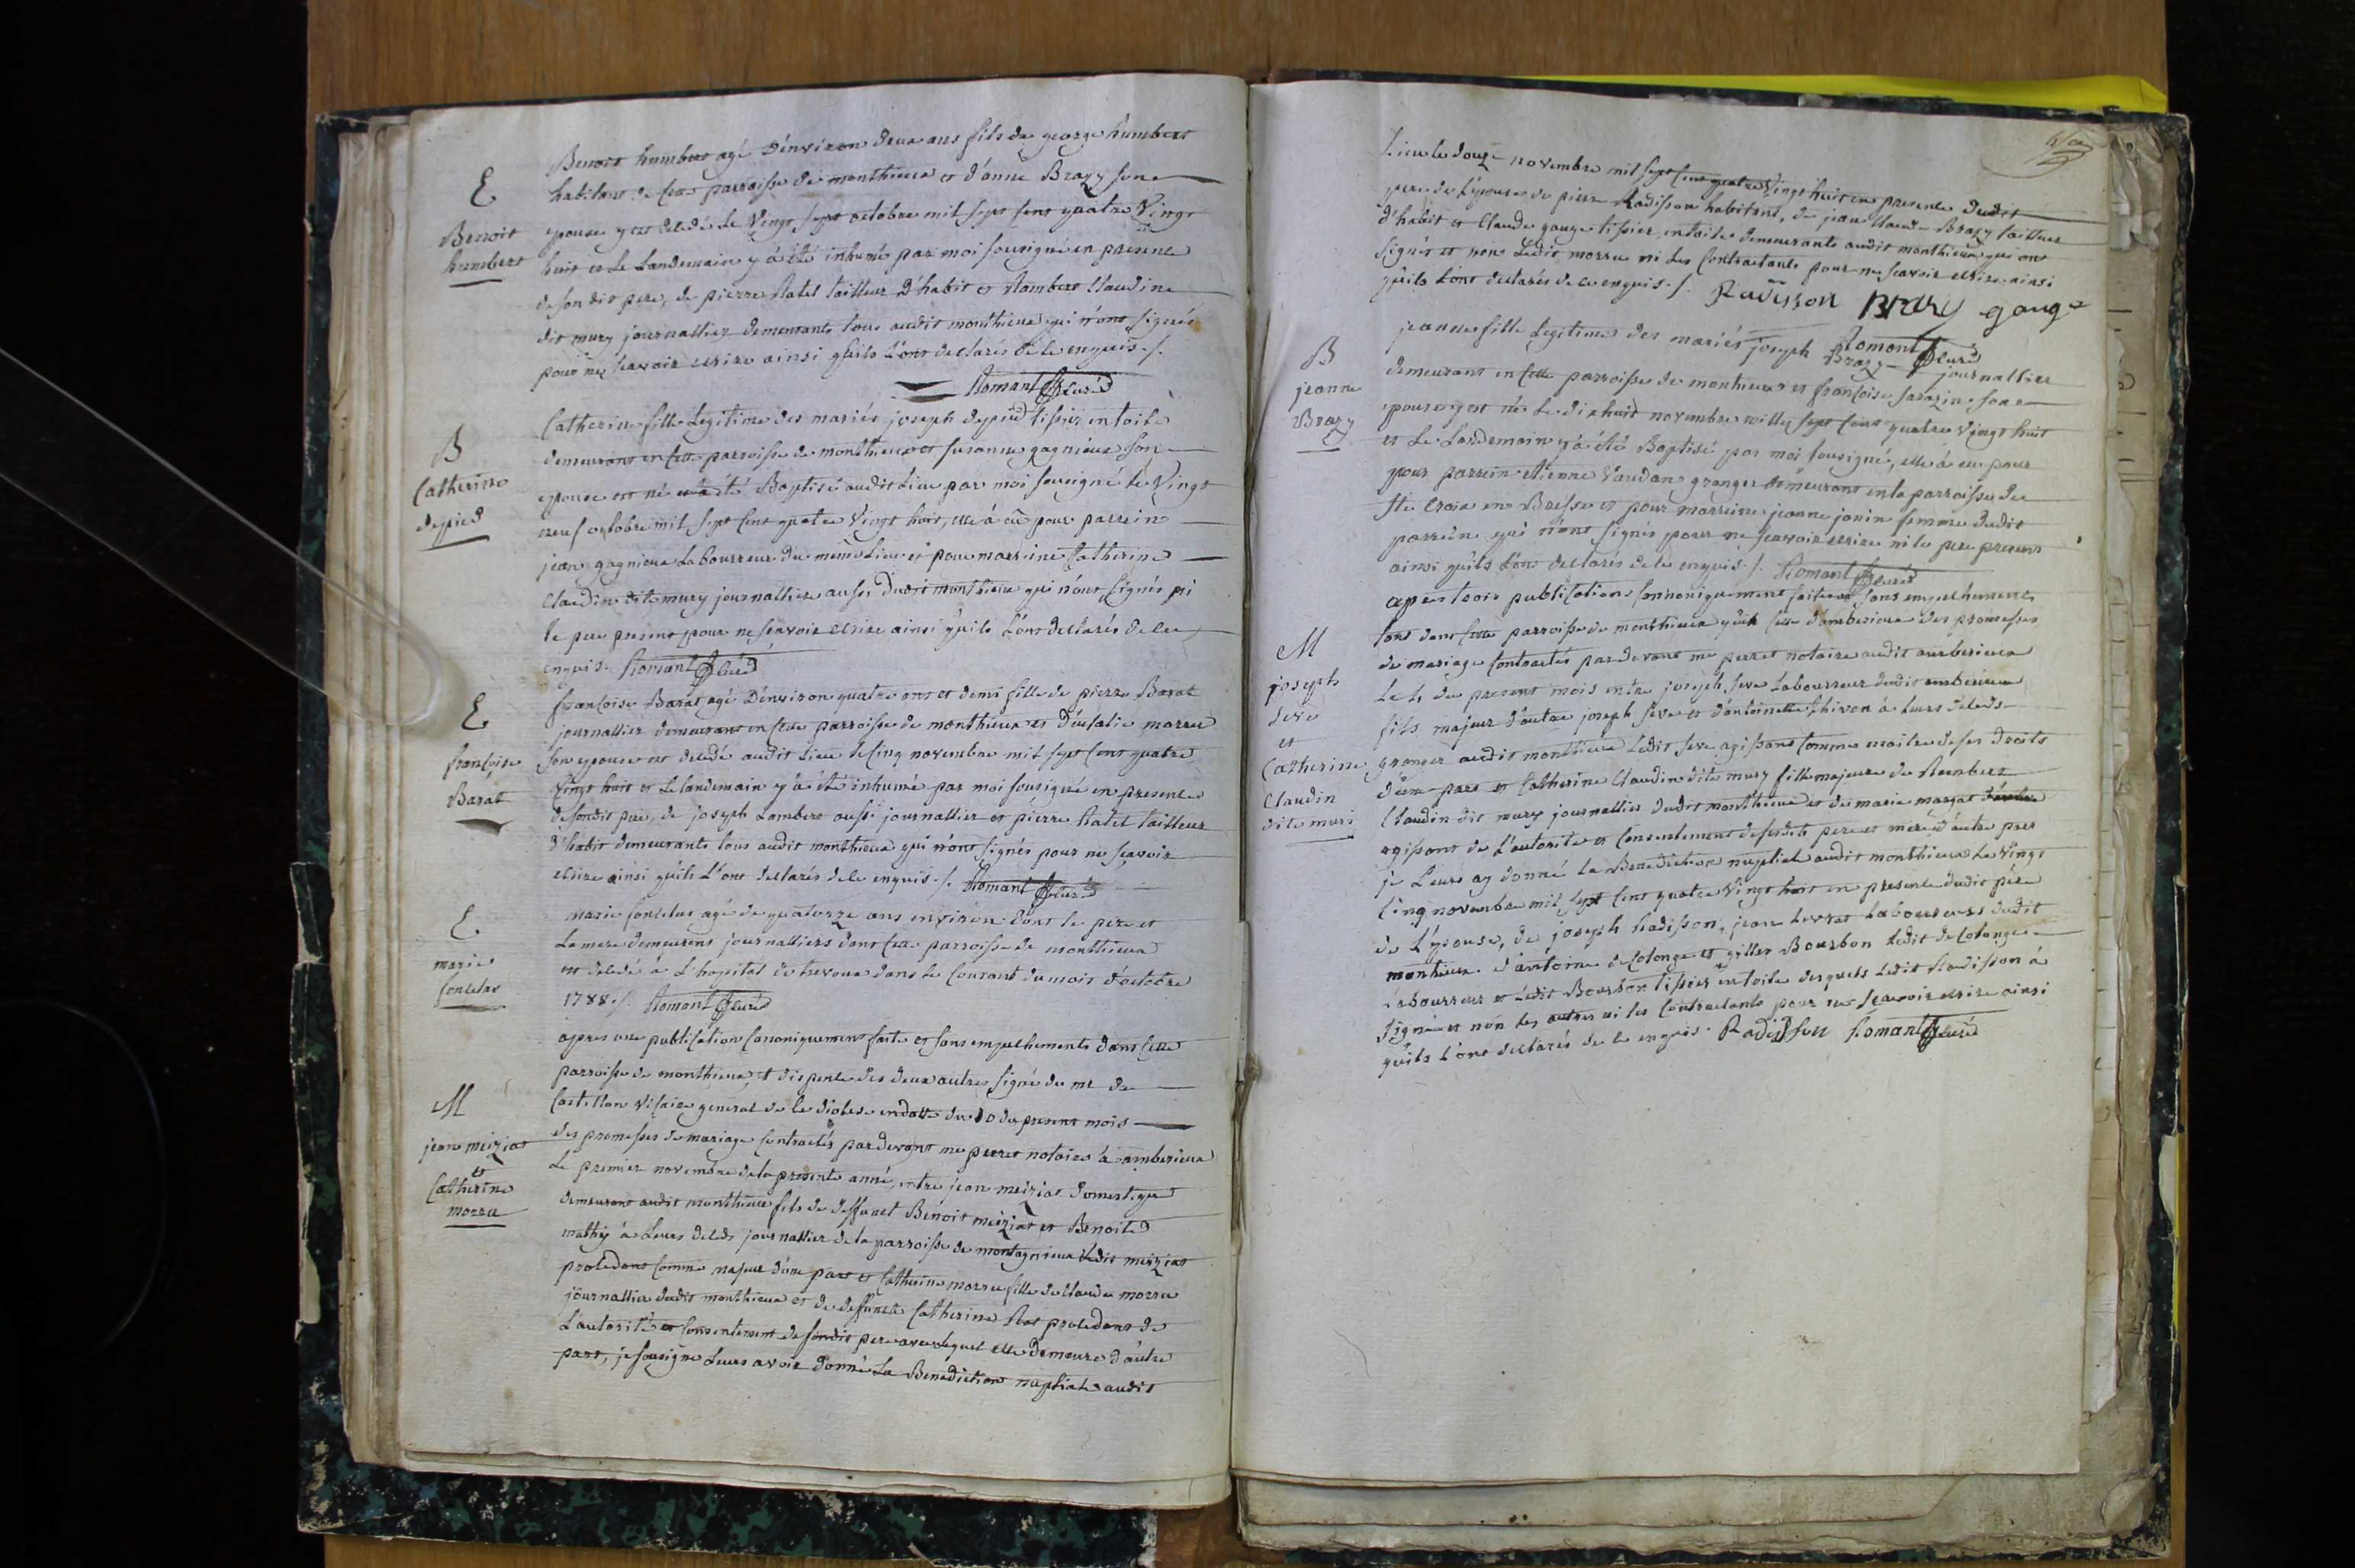 E
Benoit
humbert
Benoit humbert agé d'environ deux ans fils de george humbert
habitant de cette parroisse de monthieux et d'anne Brazy son
epouse y est decedé le vingt sept octobre mil sept cent quatre vingt
huit et le landemain y á été inhumé par moi sousigné en presence
de son dit pere, de pierre Ratel tailleur d'habit et Rambert Claudin
dit mury journallier demeurants tous audit monthieux qui n'ont signés
pour ne sçavoir ecrire ainsi quils l'ont declarés de ce enquis ./.
Romant Curé
B
Catherine
depied
Catherine fille legitime des mariés joseph depied tissier en toile
demeurant en cette parroisse de monthieux et susanne gagnieux son
epouse est né et á été Baptisé audit lieu par moi sousigné le vingt
neuf octobre mil sept cent quatre vingt huit, elle á eû pour parrein
jean gagnieux Laboureur du même lieu et pour marreine Catherine
Claudin dite mury journalliere aussi dudit monthieux qui n'ont signés ni
le pere present pour ne sçavoir ecrire ainsi quils l'ont declarés de ce
enquis. Romant Curé
E
francoise
Barat
francoise Barat agé d'environ quatre ans et demi fille de pierre Barat
journallier demeurant en cette parroisse de monthieux et d'eulalie morru
son epouse est decedé audit lieu le cinq novembre mil sept cent quatre
vingt huit et le landemain y á été inhumé par moi sousigné en presence
de sondit pere, de joseph Lambert aussi journallier et pierre Ratel tailleur
d'habit demeurants tous audit monthieux qui n'ont signés pour ne sçavoir
ecrire ainsi quils l'ont declarés de ce enquis ./. Romant Curé
E
marie
Concelar
marie Concelar agé de quatorze ans environ dont le pere et
la mere demeurent journalliers dans cette parroisse de monthieux
est decedé á L'hopital de trevoux dans le courant du mois d'octobre
1788 ./. Romant Curé
M
jean meiziat
et
Catherine
morru
apres une publication cannoniquement faite et sans empechements dans cette
parroisse de monthieux, et dispense des deux autres signé de mr de
Castillon vicaire general de ce diocese en datte du 10 du present mois
des promesses de mariage contractés pardevant me perret notaire á amberieux
le premier novembre de la presente anné, entre jean meiziat domestique
demeurant audit monthieux fils de deffunct Benoit meiziat et Benoite
mathy á leurs deceds journallier de la parroisse de montagnieux Ledit meiziat
procedant comme majeur d'une part et Catherine morru fille de Claude morru
journallier dudit monthieux et de deffuncte Catherine procedant de
L'autorité et consentement de sondit pere avec lequel elle demeure d'autre
part, je sousigné leurs avoir donné La Benediction nuptiale audit
lieu le douze novembre mil sept cent quatre vingt huit en presence dudit
pere de l'epouse de pierre Radisson habitant, de jean Claude Brazy tailleur
d'habit et Claude gauge tissier en toile demeurants audit monthieux qui ont
signés et non Ledit morru ni Les Contractants pour ne sçavoir ecrire ainsi
quils l'ont declarés de ce enquis ./. Radisson Brazy gauge
Romant Curé
B
jeanne
Brazy
jeanne fille Legitime des mariés joseph Brazy journallier
demeurant en cette parroisse de monthieux et francoise sarazin son
epouse y est né le dix huit novembre mille sept cent quatre vingt huit
et le landemain y á été Baptisé par moi sousigné, elle á eu pour
pour parrein etienne vaudan granger demeurant en la parroisse de
Ste Croix en Bresse et pour marreine jeanne janin femme dudit
parrein qui n'ont signés pour ne sçavoir ecrire ni le pere present
ainsi quils l'ont declarés de ce enquis ./. Romant Curé
M
joseph
seve
et
Catherine
Claudin
dite muri
apres trois publications cannoniquement faites et sans empechements
tant dans cette parroisse de monthieux que celle d'amberieux des promesses
de mariage contractés pardevant me perret notaire audit amberieux
le 4 du present mois entre joseph seve Laboureur dudit amberieux
fils majeur d'autre joseph seve et d'antoinette thivon á leurs deceds
granger audit monthieux Ledit seve agissant comme maitre de ses droits
d'une part et Catherine Claudin dite mury fille majeure de Rambert
Claudin dit mury journallier dudit monthieux et de marie margat
agissant de L'autorité et consentement de sesdits pere et mere d'autre part
je Leurs ay donné La Benediction nuptiale audit monthieux Le vingt
cinq novembre mil sept cent quatre vingt huit en presence dudit pére
de L'epouse, de joseph Radisson, jean Levrat Laboureurs dudit
monthieux d'antoine decolonge et gilles Bourbon Ledit decolonge
Laboureur et Ledit Bourbon tissier en toile desquels Ledit Radisson á
signé et non les autres ni les Contractants pour ne sçavoir ecrire ainsi
quils l'ont declarés de ce enquis. Radisson Romant Curé